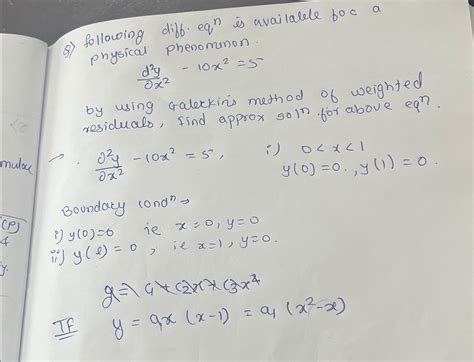 Q) following diff. eqⁿ is available for a
physical phenominon.
d²y/∂x² - 10x² = 5
by using Galerkin's method of weighted
residuals, find approx solⁿ for above eqⁿ.
∂²y/∂x² - 10x² = 5, i) 0 < x < 1
y(0)=0., y(1) = 0.
mulae
Boundary condⁿ →
i) y(0)=0 ie x=0, y=0
ii) y(l) = 0, ie x=1, y=0.
(P)
4
y.
TF y = a₁x (x-1) = a₁ (x²-x)